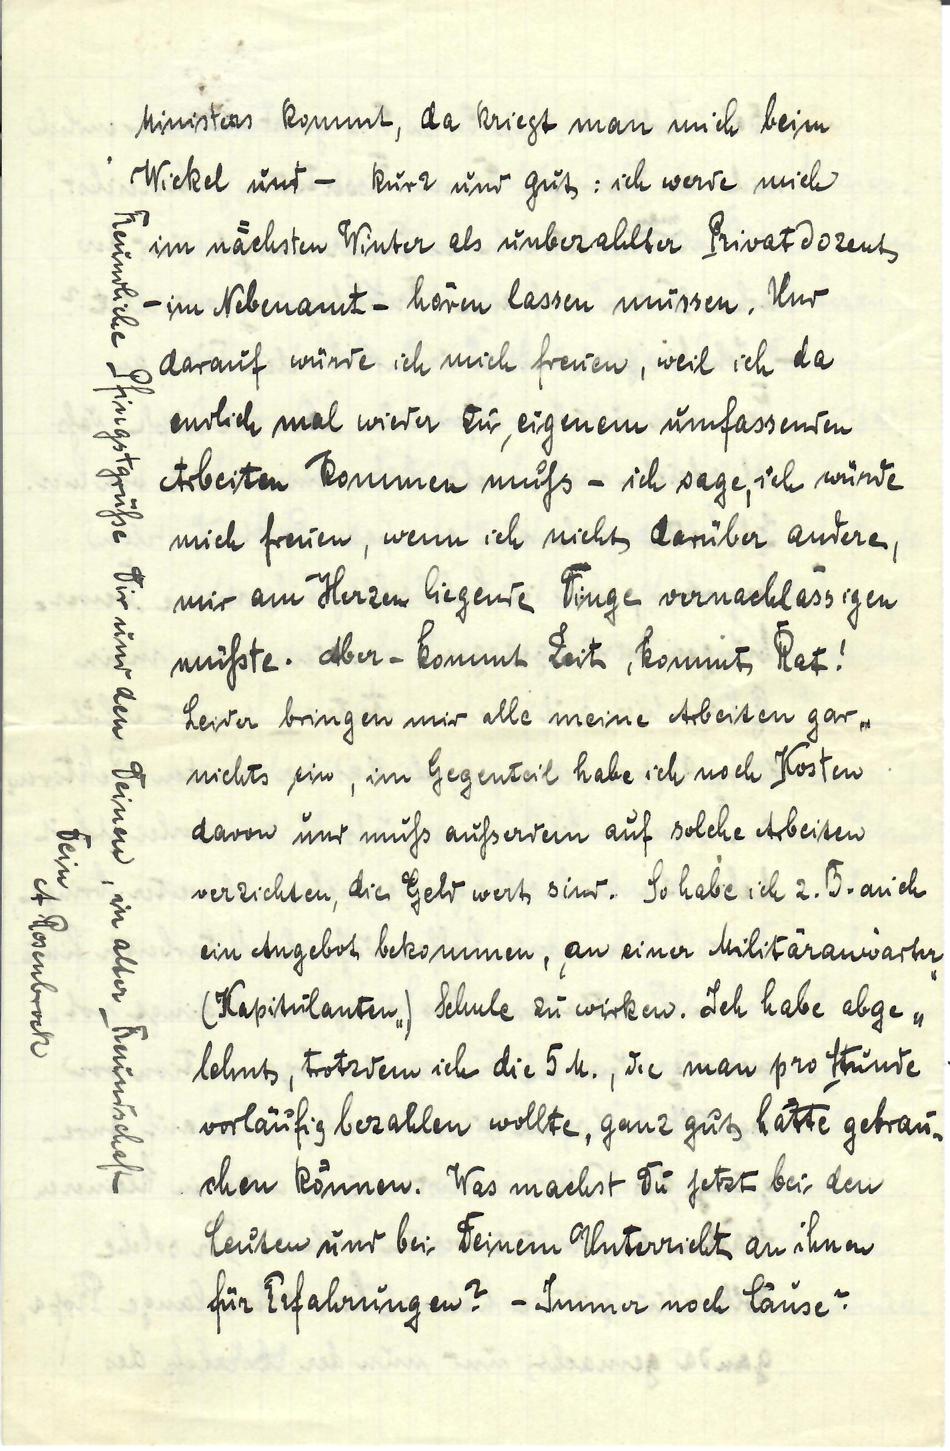 Ministers kommt, da kriegt man mich beim
Wickel und – kurz und gut: ich werde mich
im nächsten Winter als unbezahlter Privatdozent
– im Nebenamt – hören lassen müssen. Und
darauf würde ich mich freuen, weil ich da
endlich mal wieder zu eigenem umfassenden
Arbeiten kommen muß – ich sage, ich würde
mich freuen, wenn ich nicht darüber andere,
mir am Herzen liegende Dinge vernachlässigen
müßte. Aber – kommt Zeit, kommt Rat!
Leider bringen mir alle meine Arbeiten gar„
nichts ein, im Gegenteil habe ich noch Kosten
davon und muß außerdem auf solche Arbeiten
verzichten, die Geld wert sind. So habe ich z. B. auch
ein Angebot bekommen, an einer Militäranwärter„
(Kapitulanten„) Schule zu wirken. Ich habe abge„
lehnt, trotzdem ich die 5 M., die man pro Stunde
vorläufig bezahlen wollte, ganz gut hätte gebrau„
chen können. Was machst Du jetzt bei den
Leuten und bei Deinem Unterricht an ihnen
für Erfahrungen? – Immer noch Läuse?
Freundliche Pfingstgrüße Dir und den Deinen, in alter Freundschaft
Dein
A Rosenbrock